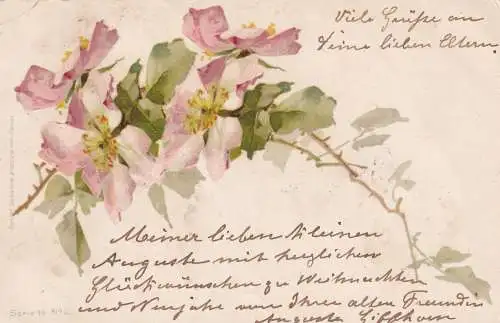 Viele Grüße an
Deine lieben Eltern.
Meiner lieben kleinen
Auguste mit herzlichen
Glückwünschen zu Weihnachten
und Neujahr von Ihrer alten Freundin
Auguste
Serie